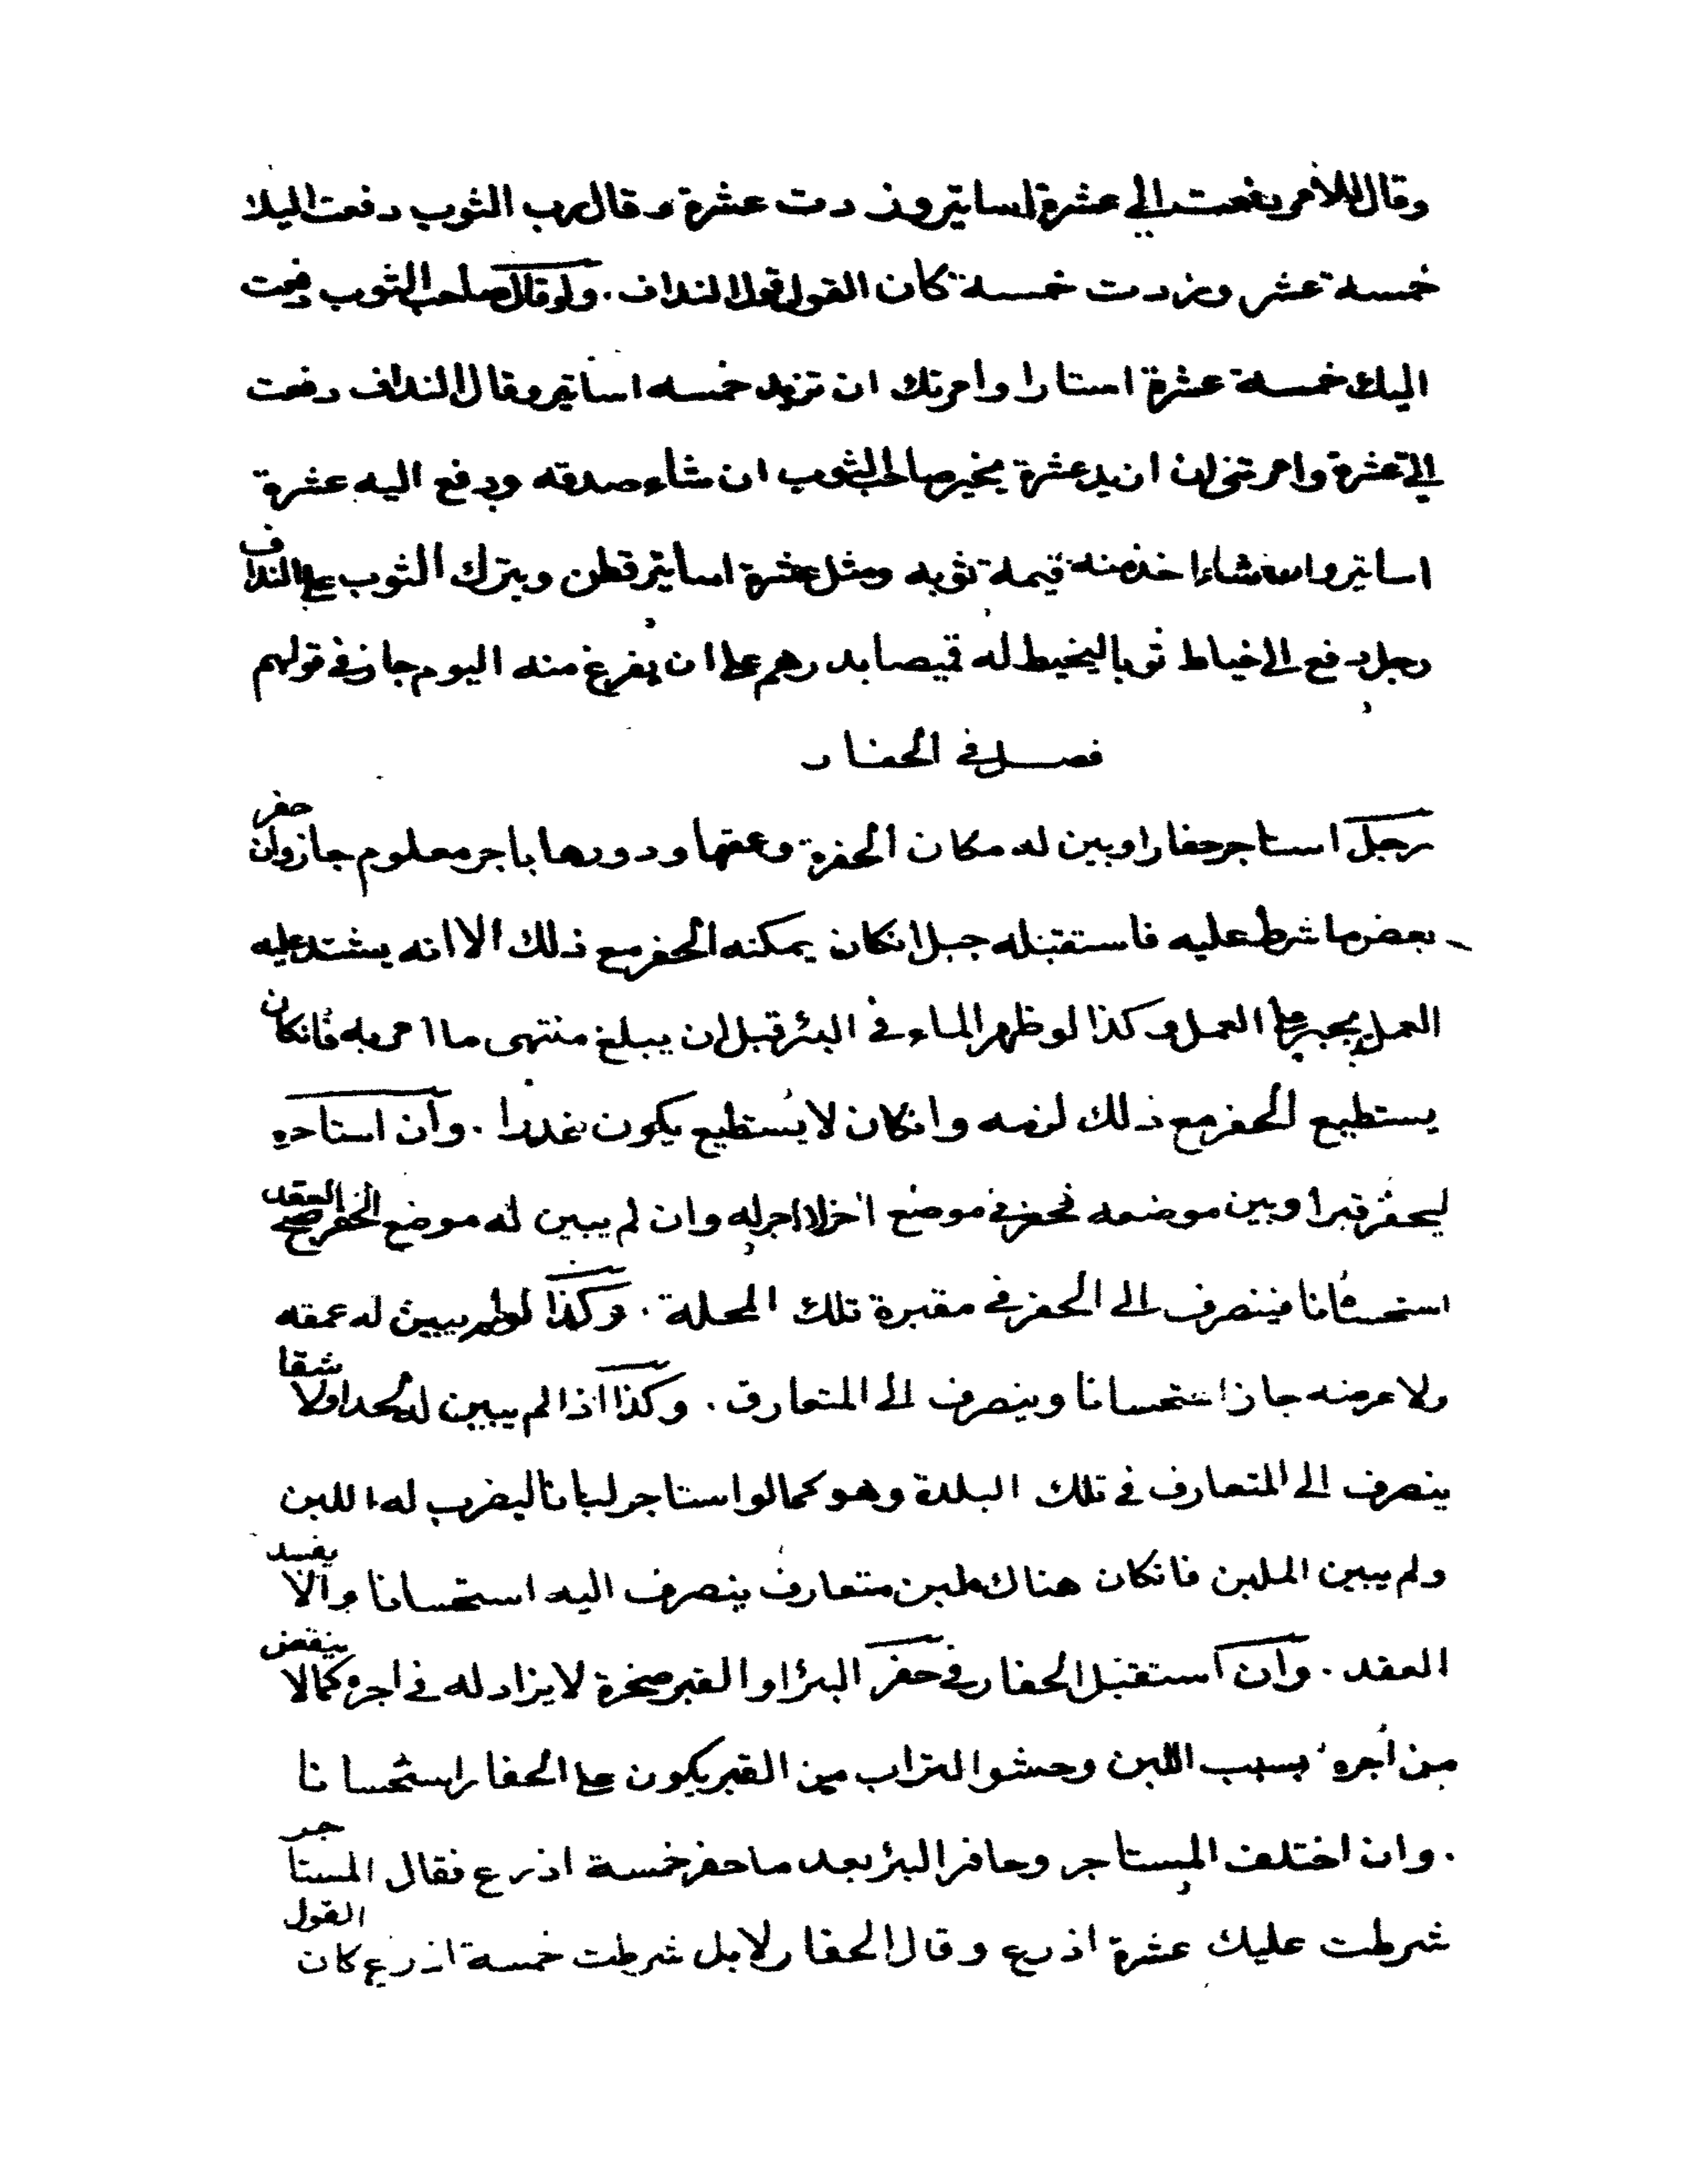 وقال للآمر دفعت الي عشرة اساتير وزدت عشرة وقال رب الثوب دفعت اليك
خمسة عشر وزدت خمسة كان القول قول النداف . ولو قال صاحب الثوب دفعت
اليك خمسة عشرة استارا وامرتك ان تزيد خمسه اساتير وقال النداف دفعت
الي عشرة وامرتني ان ازيد عشرة يخير صاحب الثوب ان شاء صدقه ودفع اليه عشرة
اساتير وان شاء اخذ منه قيمة ثوبه ومثل عشرة اساتير قطن ويترك الثوب على النداف
رجل دفع الى خياط ثوبا ليخيط له قميصا بدرهم على ان يفرغ منه اليوم جاز في قولهم
فصل في الحفار
رجل استاجر حفارا وبين له مكان الحفرة وعمقها ودورها باجر معلوم جاز وان حفر
بعض ما شرط عليه فاستقبله جبل انكان يمكنه الحفر مع ذلك الا انه يشتد عليه
العمل يجبر على العمل وكذا لو ظهر الماء في البئر قبل ان يبلغ منتهى ما امر به فانكان
يستطيع الحفر مع ذلك لزمه وانكان لا يستطيع يكون عذرا . وان استاجره
ليحفر قبرا وبين موضعه فحفر في موضع اخر لا اجر له وان لم يبين له موضع الحفر صح العقد
استحسانا فينصرف الى الحفر في مقبرة تلك المحلة . وكذا لو لم يبين له عمقه
ولا عرضه جاز استحسانا وينصرف الى المتعارف . وكذا اذا لم يبين له لحدا ولا شقا
ينصرف الى المتعارف في تلك البلدة وهو كما لو استاجر لبانا ليضرب له اللبن
ولم يبين الملبن فانكان هناك ملبن متعارف ينصرف اليه استحسانا والا يفسد
العقد . وان استقبل الحفار في حفر البئر او القبر صخرة لا يزاد له في اجره كما لا ينقص
من اجره بسبب اللين وحشو التراب من القبر يكون على الحفار استحسانا
. وان اختلف المستاجر وحافر البئر بعد ما حفر خمسة اذرع فقال المستاجر
شرطت عليك عشرة اذرع وقال الحفار لا بل شرطت خمسة اذرع كان القول